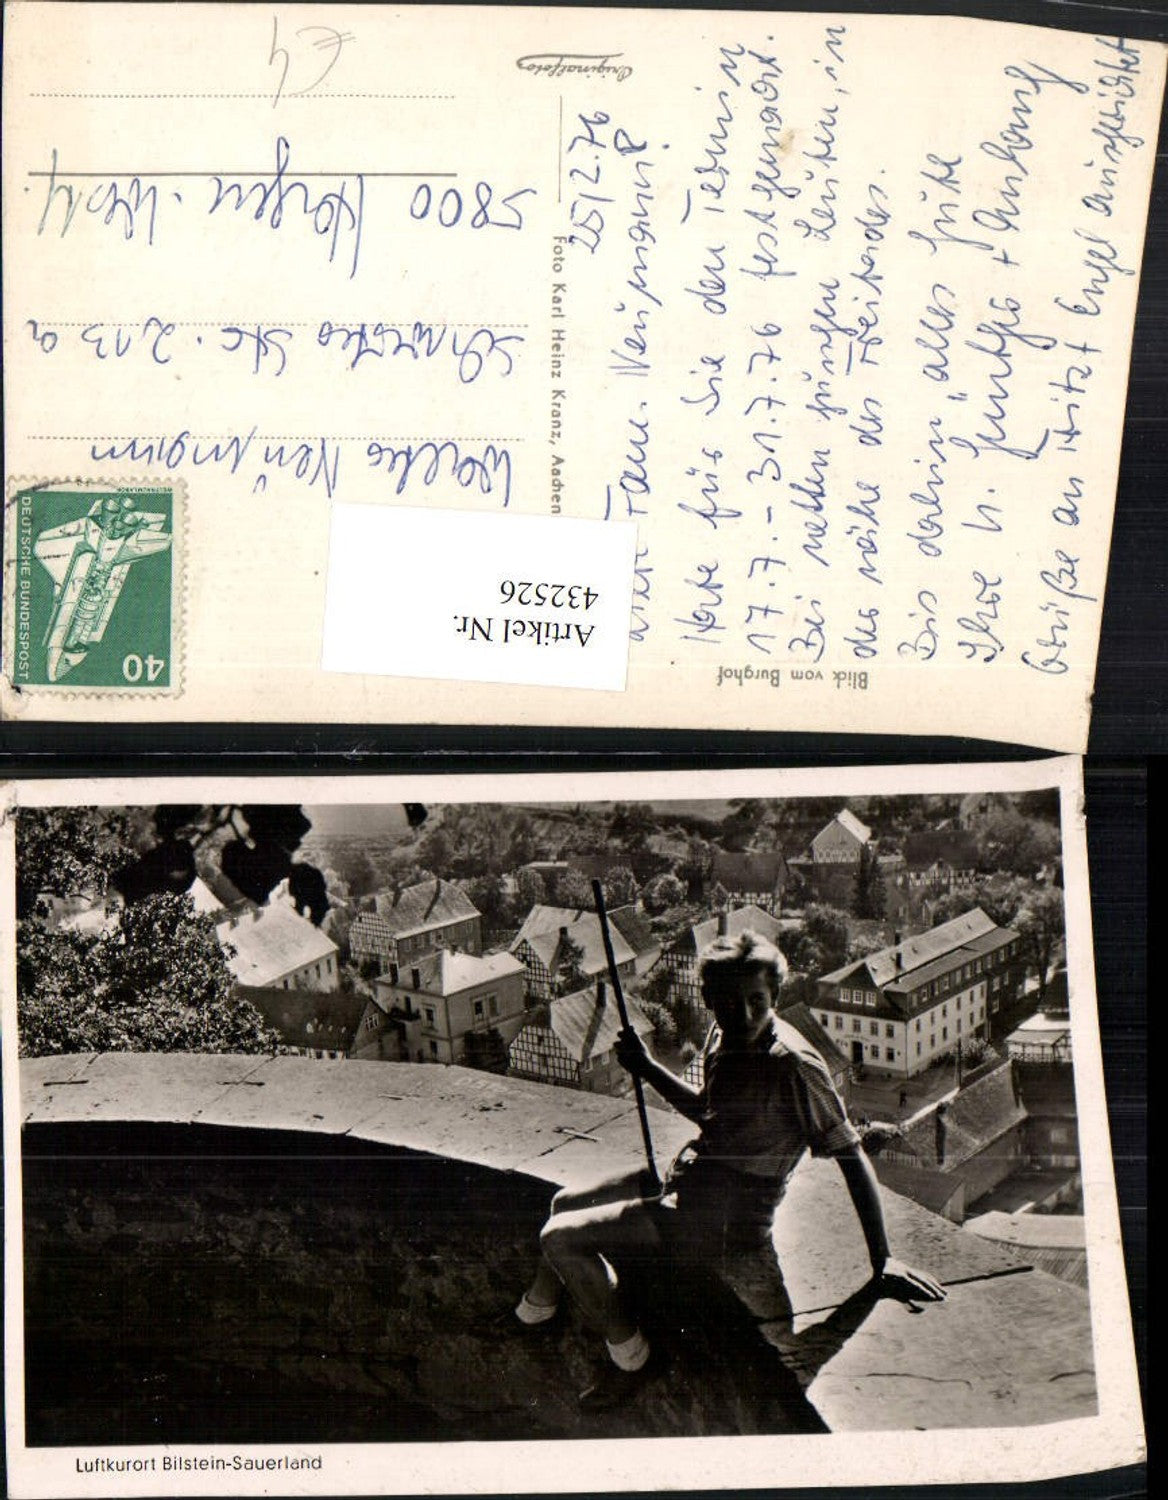 Originalfoto
€4
25/2.76
Fam. Neumann!
Habe für Sie den Termin
17.7. - 31.7.76 festgemacht.
Bei netten jungen Leuten, in
der nähe des
Bis dahin "alles Gute
Ihre H. + Anhang
Grüße an Fritz! Engel ausgerichtet
Walter Neumann
Str. 213 a
5800 Hagen-Westf.
Foto Karl Heinz Kranz, Aachen
Blick vom Burghof
Artikel Nr.
432526
DEUTSCHE BUNDESPOST
WELTRAUMLABOR
40
Luftkurort Bilstein-Sauerland